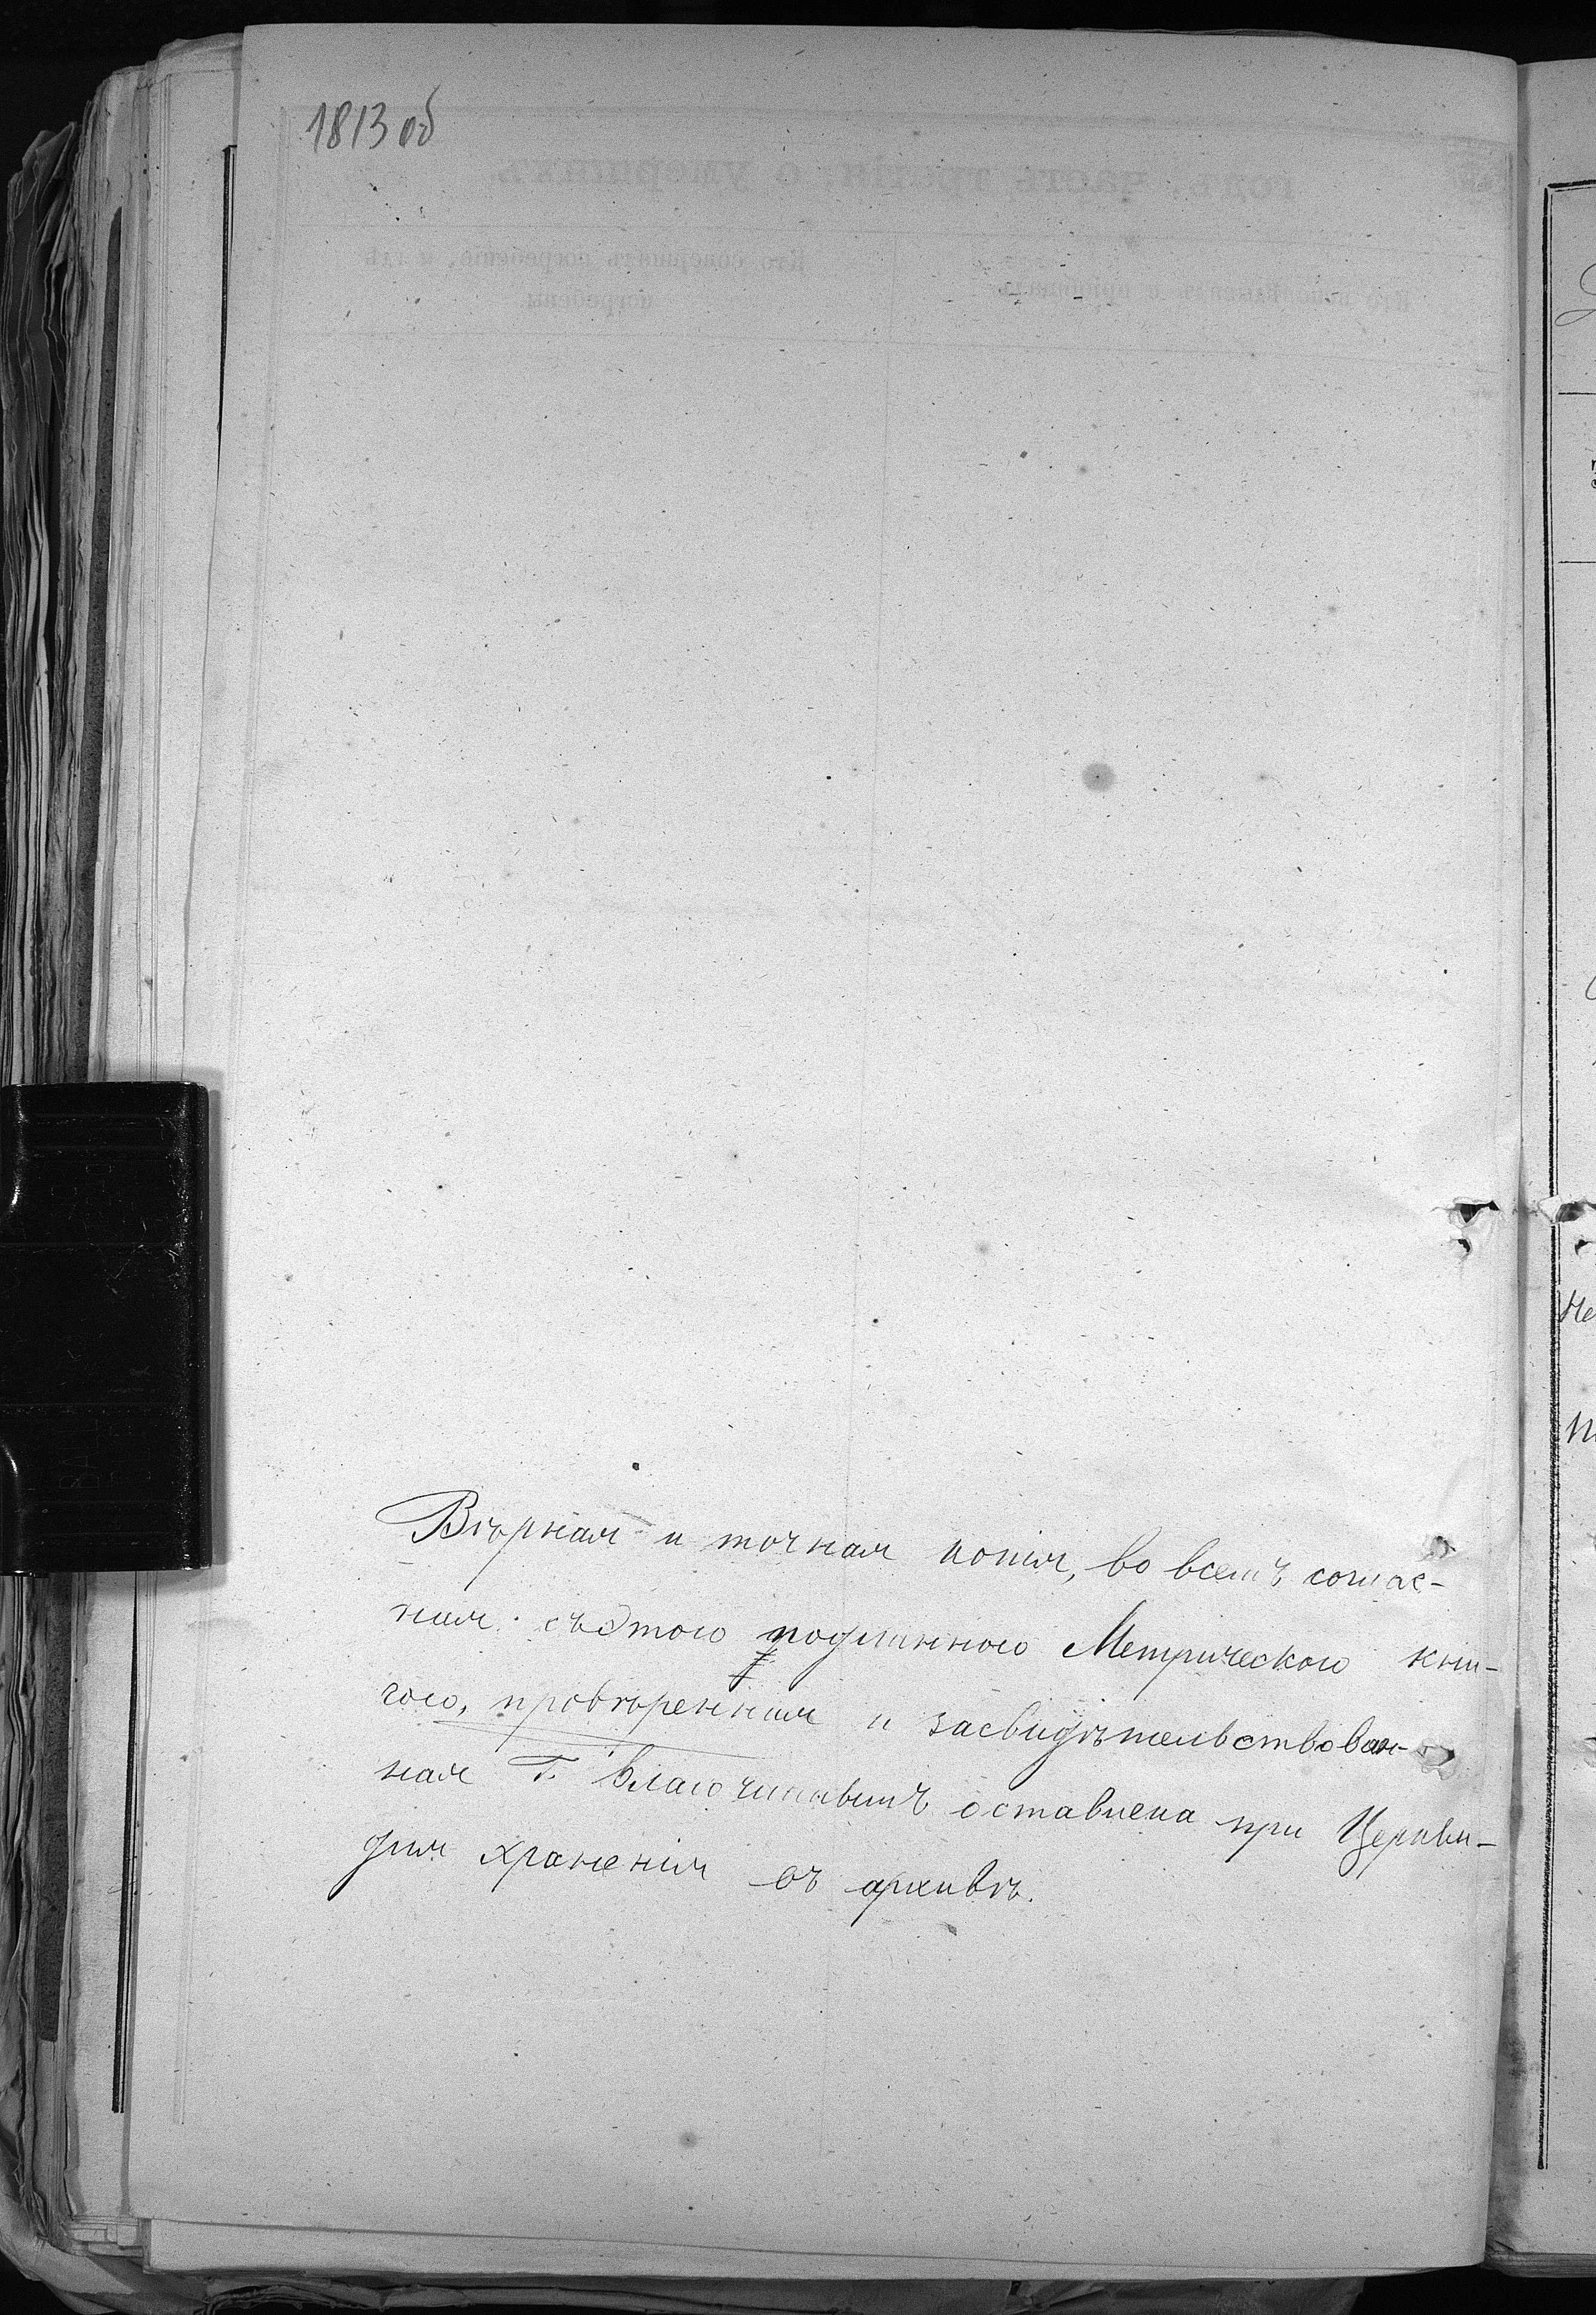 1813 об
Вѣрная и точная копія, во всемъ соглас-
ная съ этою подлинною Метрическою кни-
гою, провѣренная и засвидѣтельствован-
ная Г. Благочиннымъ оставлена при Церкви
для храненія въ архивѣ.